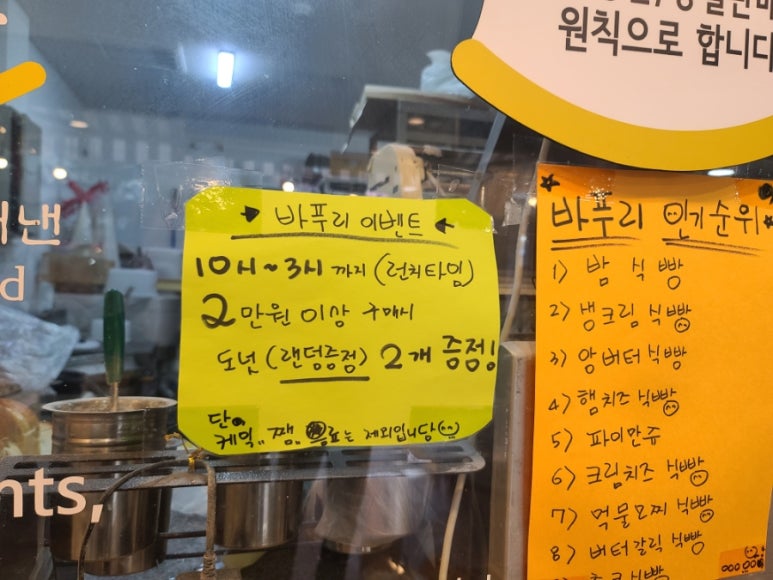 원칙으로 합니다
낸
d
nts,
바푸리 이벤트
10시~3시 까지 (런치타임)
2만원 이상 구매시
도넛 (랜덤증정) 2개 증정!
단,
케익, 쨈, 음료는 제외입니당
바푸리 인기순위
1) 밤 식빵
2) 생크림 식빵
3) 앙버터 식빵
4) 햄치즈 식빵
5) 파이만쥬
6) 크림치즈 식빵
7) 먹물모찌 식빵
8) 버터갈릭 식빵